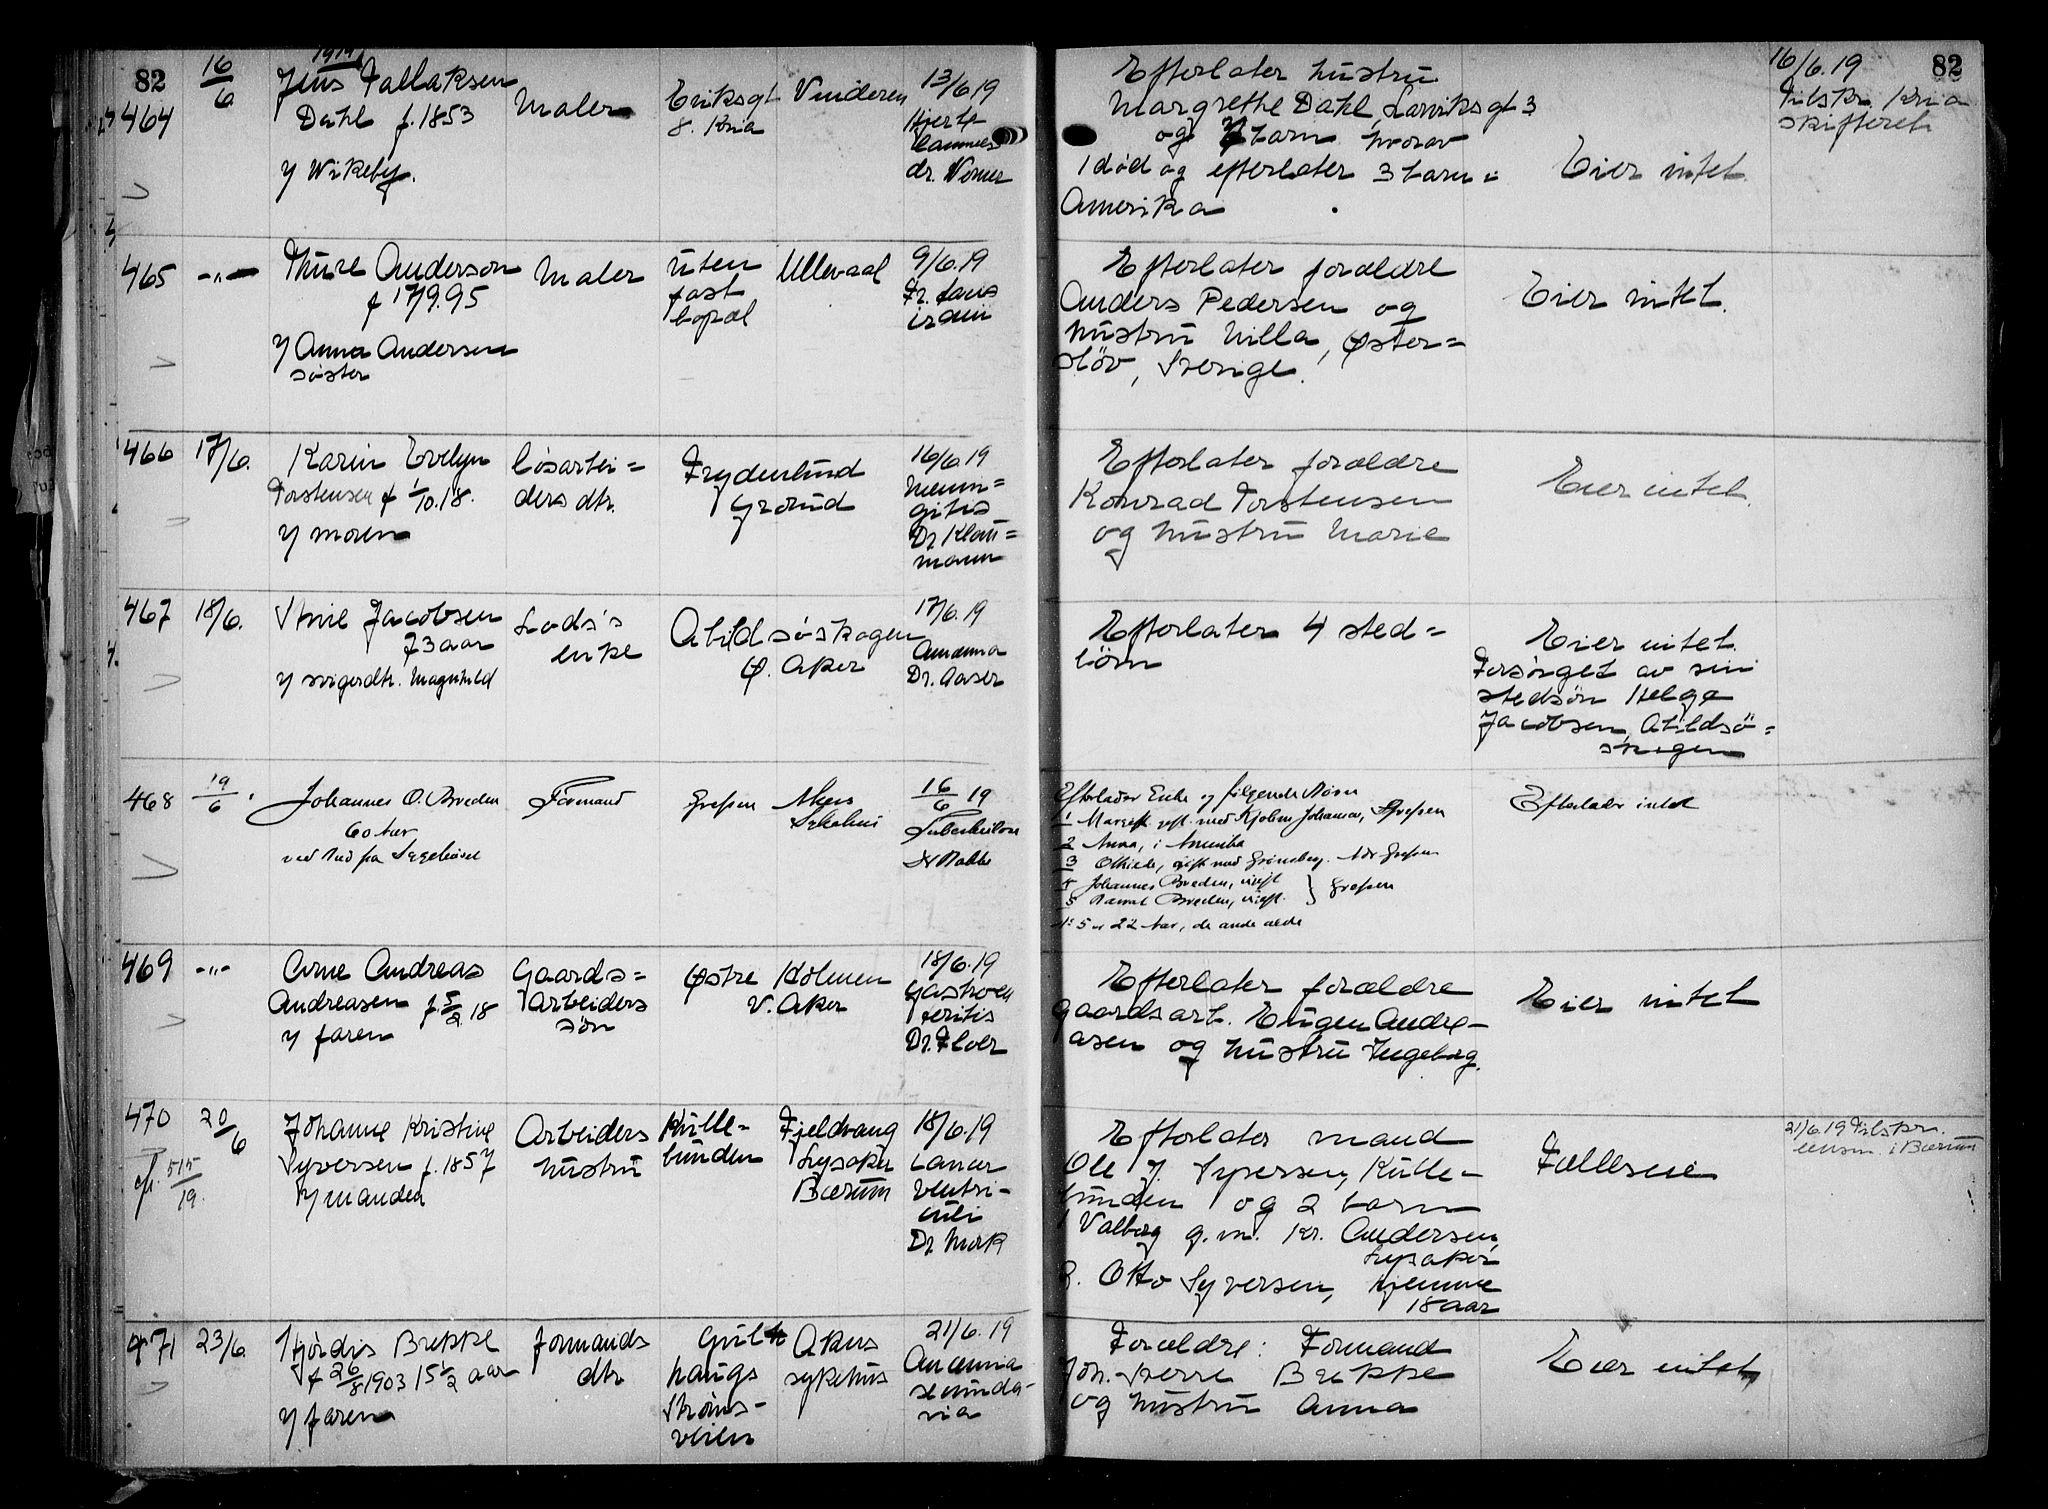 82
464
16/6
1919
Jens Tallaksen
Dahl f. 1853
v/ Wikeby.
Maler
Eriksgt
8. Kria
Vinderen
13/6.19
Hjerte
lammels
dr. Vomer
Efterlater hustru
Margrethe Dahl, Larviksgt 3
og 7 barn hvorav
1 død og efterlater 3 barn i
Amerika
Eier intet.
16/6.19
Tilskr. Kria
skifteret
82
465
-"-
Thure Anderson
f 17/9.95
v/ Anna Andersen
søster
Maler
Uten
fast
bopæl
Ullevaal
9/6.19
Efterlater forældre
Anders Pedersen og
hustru Nilla, Øster=
slöv, Sverige.
Eier intet.
466
17/6.
Karin Evelyn
Torstensen f 1/10.18.
v/ moren
Løsarbei=
ders dtr.
Frydenlund
Grorud
16/6.19
Menin=
gitis
Dr. Klau=
mann
Efterlater forældre
Konrad Torstensen
og hustru Marie
Eier intet.
467
18/6.
Jacobsen
73 aar
v/ svigerdtr. Magnhild
Lods's
enke
Abildsöskogen
Ø. Aker
17/6.19
Anæmia
Dr. Aaser
Efterlater 4 sted=
börn
Eier intet.
Forsörget av sin
stedsön Helge
Jacobsen, Abildsö=
skogen
468
19/6.
Johannes O. Breden
60 Aar
ved Bud fra Sygehuset
Formand
Grefsen
Akers
Sykehus
16/6 19
Tuberkulose
Efterlader Enke og følgende Børn
1 Margit gift med Hjalmar Johansen, Grefsen
2 Anna, i Amerika
3 Othilde, gift med Grönsberg. Adr Grefsen
4 Johannes Breden, ugift
5 Breden, ugift. } Grefsen
No 5 er 22 Aar, de andre ældre
Efterlader intet
469
-"-
Arne Andreas
Andreasen f. 5/2.18
v/ faren
Gaards=
arbeiders
søn
Østre Holmen
V. Aker
18/6.19
Gastroen
teritis
Dr. Floer
Efterlater forældre
gaardsarb. Eugen Andre-
asen og hustru Ingeborg.
Eier intet
470
20/6
cfr. 515/19.
Johanne Kristine
Syversen f. 1857
v/ manden
Arbeiders
hustru
Kulle-
bunden
Fjeldvang
Lysaker
Bærum
18/6.19
Cancer
ventri-
culi
Dr. Mork
Efterlater mand
Ole J. Syversen, Kulle-
bunden og 2 barn
1 Valborg g.m. Kr. Andersen
Lysaker
2. Otto Syversen, hjemme
18 aar
Fælleseie
21/6.19 Tilskr.
lensm. i Bærum
471
23/6.
Hjördis Brekke
f 26/8 1903 15 1/2 aar
v/ faren
Formands
dtr
Gulh
haugs
Ströms-
veien
Akers
sykehus
21/6.19
Anæmia
secunda-
ria
Forældre: Formand
Joh. Sverre Brekke
og hustru Anna
Eier intet